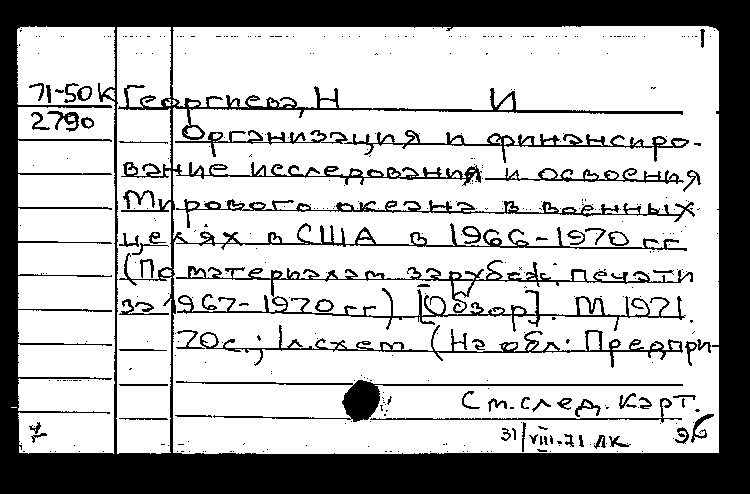 1
71-50К Георгиева, Н И
2790
Организация и финансиро-
вание исследования и освоения
Мирового океана в военных
целях в США в 1966-1970 гг
(По материалам зарубеж. печати
за 1967-1970 гг). [Обзор]. М, 1971.
70с.; 1л.схем (На обл: Предпри-
См.след. карт.
31/VIII-71 ЛК